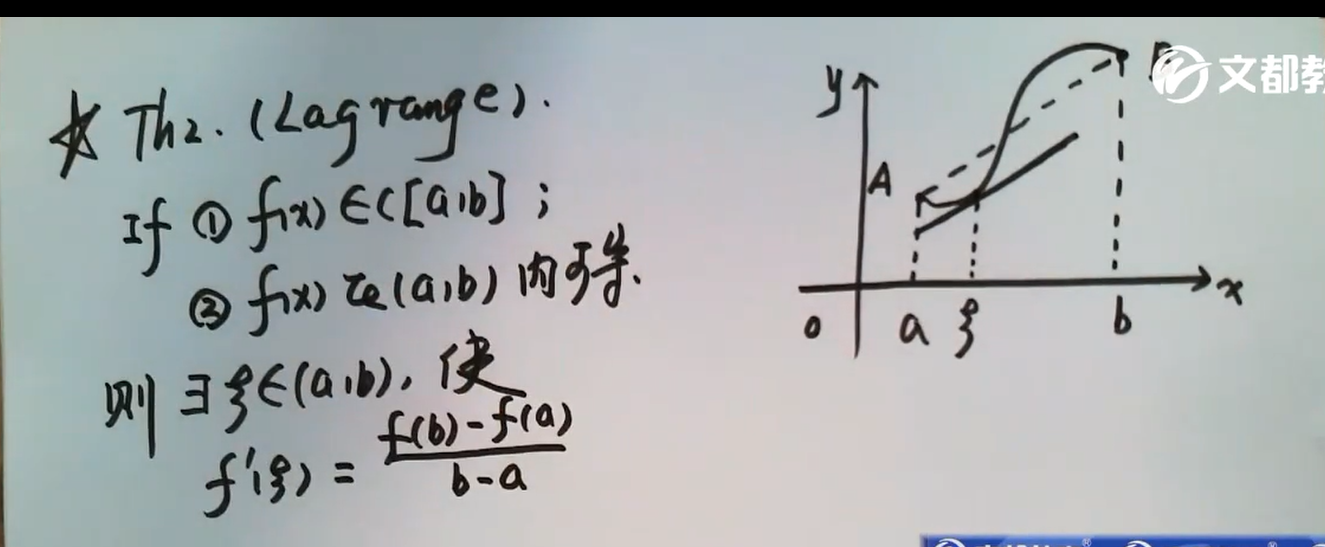 ☆ Th2. (Lagrange).
If ① f(x)∈C[a,b] ;
② f(x) 在(a,b) 内可导.
则 ∃ξ∈(a,b), 使
f'(ξ) = \frac{f(b)-f(a)}{b-a}
y
A
文都教
0 a ξ b x